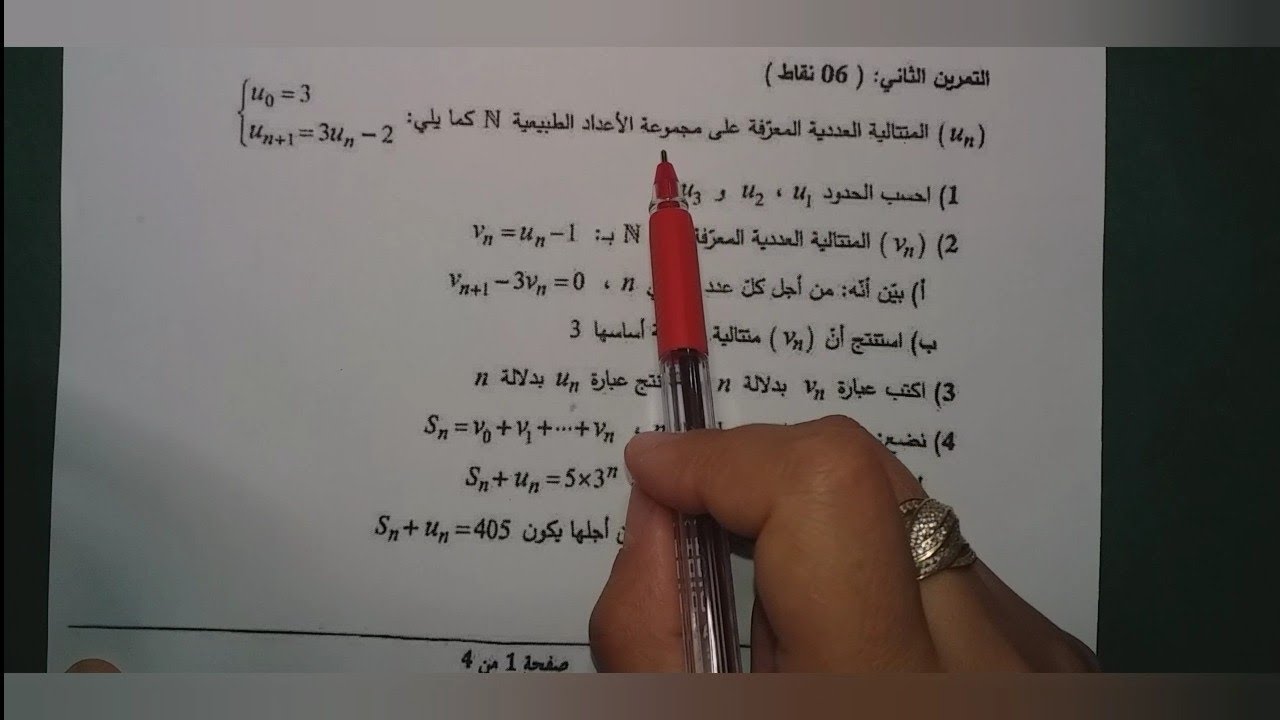 التمرين الثاني: ( 06 نقاط )
(uₙ) المتتالية العددية المعرّفة على مجموعة الأعداد الطبيعية ℕ كما يلي: { u₀ = 3
uₙ₊₁ = 3uₙ − 2
1) احسب الحدود u₁ ، u₂ و u₃
2) (vₙ) المتتالية العددية المعرّفة ℕ بـ: vₙ = uₙ − 1
أ) بيّن أنّه: من أجل كلّ عدد n ، vₙ₊₁ − 3vₙ = 0
ب) استنتج أنّ (vₙ) متتالية أساسها 3
3) اكتب عبارة vₙ بدلالة n عبارة uₙ بدلالة n
4) نضع: Sₙ = v₀ + v₁ + ··· + vₙ
Sₙ + uₙ = 5×3ⁿ
أجلها يكون Sₙ + uₙ = 405
صفحة 1 من 4